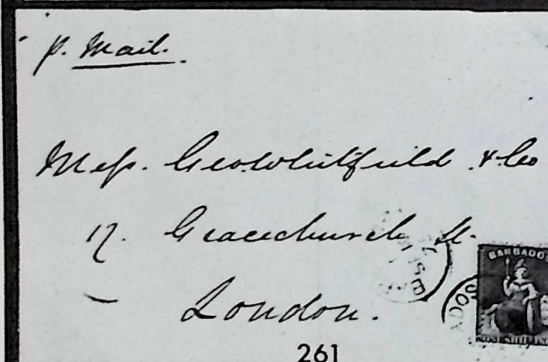 p. Mail.
Mess. Geo. Whitfield & Co
17. Gracechurch St.
London.
BARBADO
ONE SHILLIN
ADOS
261